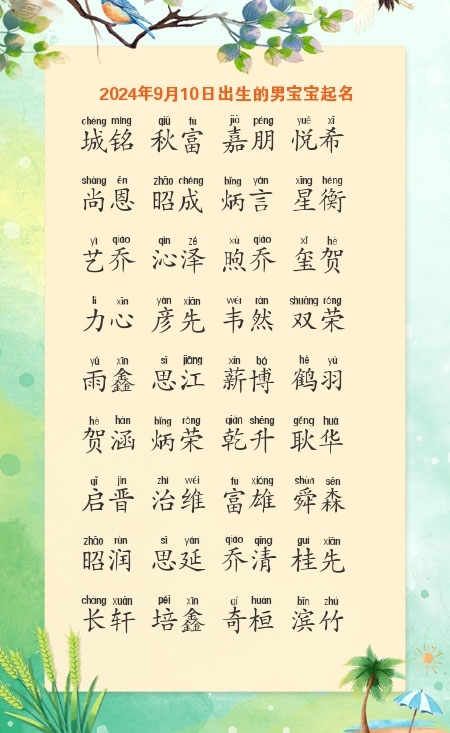 2024年9月10日出生的男宝宝起名
chéng míng qiū fù jiā péng yuè xī
城铭 秋富 嘉朋 悦希
shàng ēn zhāo chéng bǐng yán xīng héng
尚恩 昭成 炳言 星衡
yì qiáo qìn zé xù qiáo xǐ hè
艺乔 沁泽 煦乔 玺贺
lì xīn yàn xiān wéi rán shuāng róng
力心 彦先 韦然 双荣
yǔ xīn sī jiāng xīn bó hè yǔ
雨鑫 思江 薪博 鹤羽
hè hán bǐng róng qián shēng gěng huá
贺涵 炳荣 乾升 耿华
qǐ jìn zhì wéi fù xióng shùn sēn
启晋 治维 富雄 舜森
zhāo rùn sī yán qiáo qīng guì xiān
昭润 思延 乔清 桂先
cháng xuān péi xīn qí huán bīn zhú
长轩 培鑫 奇桓 滨竹